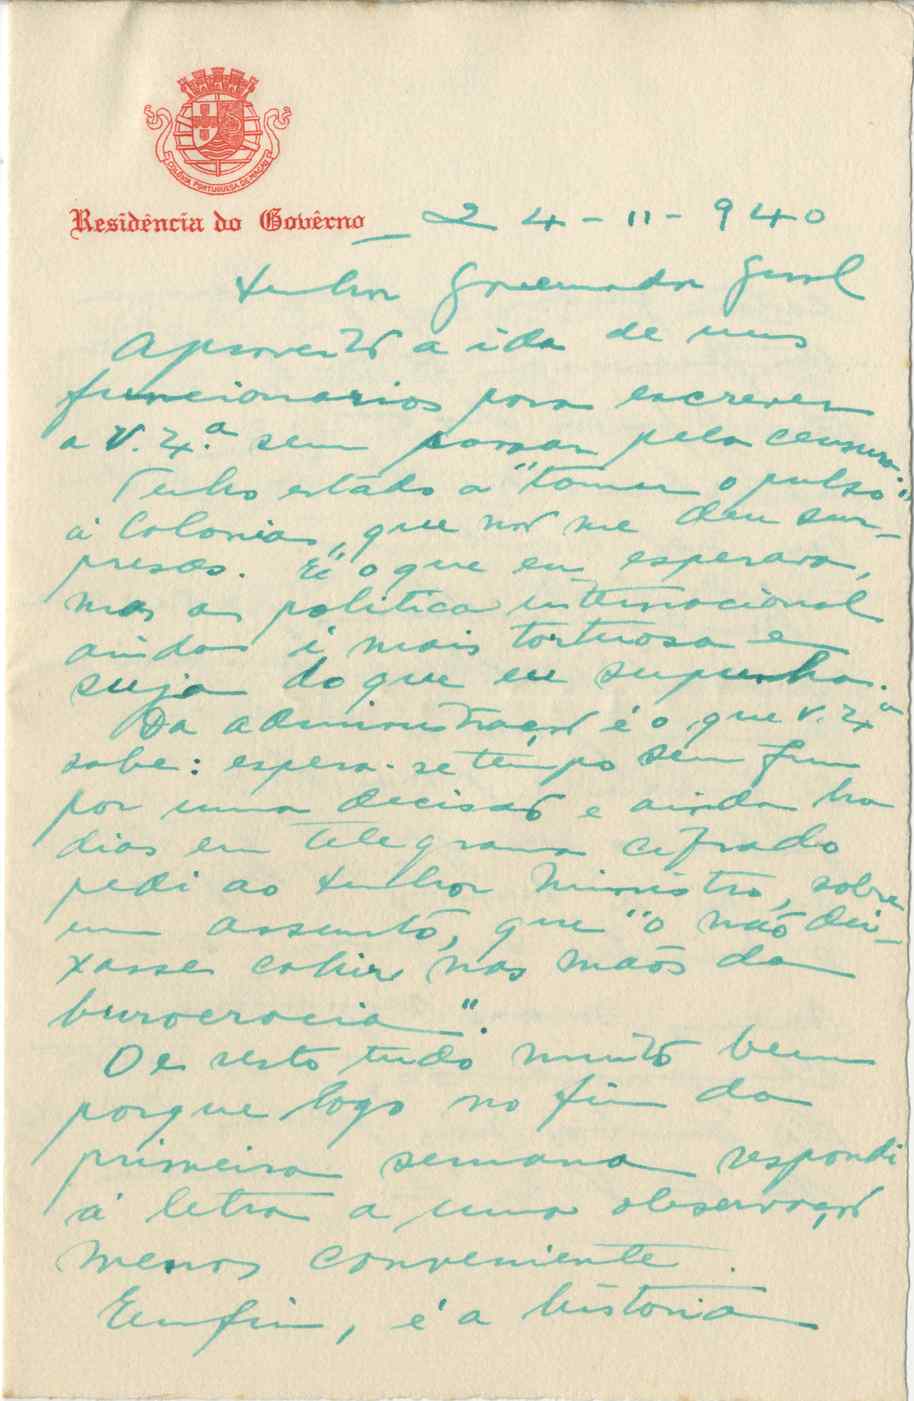 COLÓNIA PORTUGUESA DE MACAU
Residência do Govêrno
24-11-940
Senhor Governador Geral
Aproveito a ida de uns
funcionarios para escrever
a V. Ex.ª sem passar pela censura.
Tenho estado a "tomar o pulso"
á Colonia, que não me deu sur-
presas. É o que eu esperava,
mas a politica internacional
ainda é mais tortuosa e
suja do que eu supunha.
Da administração é o que V. Ex.ª
sabe: espera-se tempo sem fim
por uma decisão e ainda ha
dias em telegrama cifrado
pedi ao Senhor Ministro, sobre
um assunto, que "o não dei-
xasse cahir nas mãos da
burocracia".
De resto tudo muito bem
porque logo no fim da
primeira semana respondi
á letra a uma observação
menos conveniente.
Emfim, é a historia